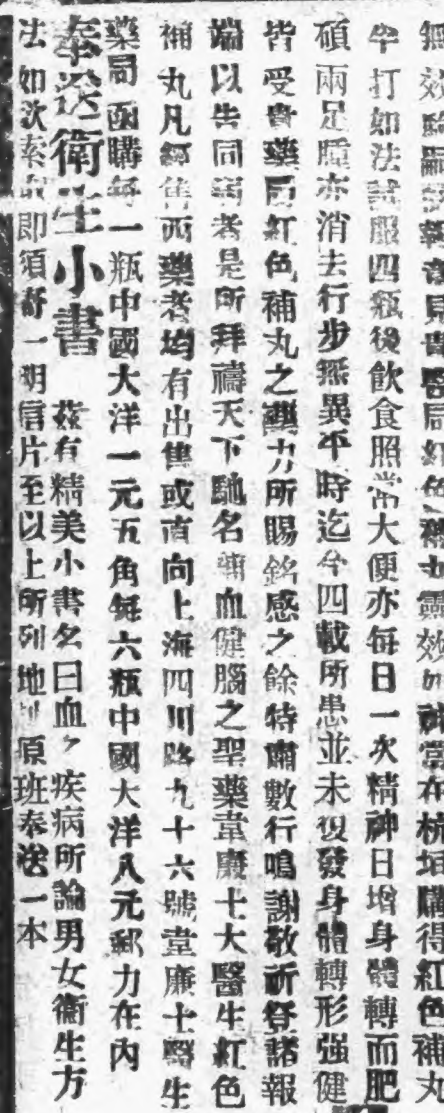 無效
貴藥局紅色補丸靈效如神當在杭垣購得紅色補丸
半打如法試服四瓶後飲食照常大便亦每日一次精神日增身體轉而肥
碩兩足腫亦消去行步無異平時迄今四載所患並未復發身體轉形强健
皆受貴藥局紅色補丸之藥力所賜銘感之餘特肅數行鳴謝敬祈登諸報
端以告同病者是所拜禱天下馳名補血健腦之聖藥韋廉士大醫生紅色
補丸凡經售西藥者均有出售或直向上海四川路九十六號韋廉士醫生
藥局函購每一瓶中國大洋一元五角每六瓶中國大洋八元郵力在內
奉送衛生小書 茲有精美小書名曰血之疾病所論男女衛生方
法如欲索取即須寄一明信片至以上所列地址原班奉送一本